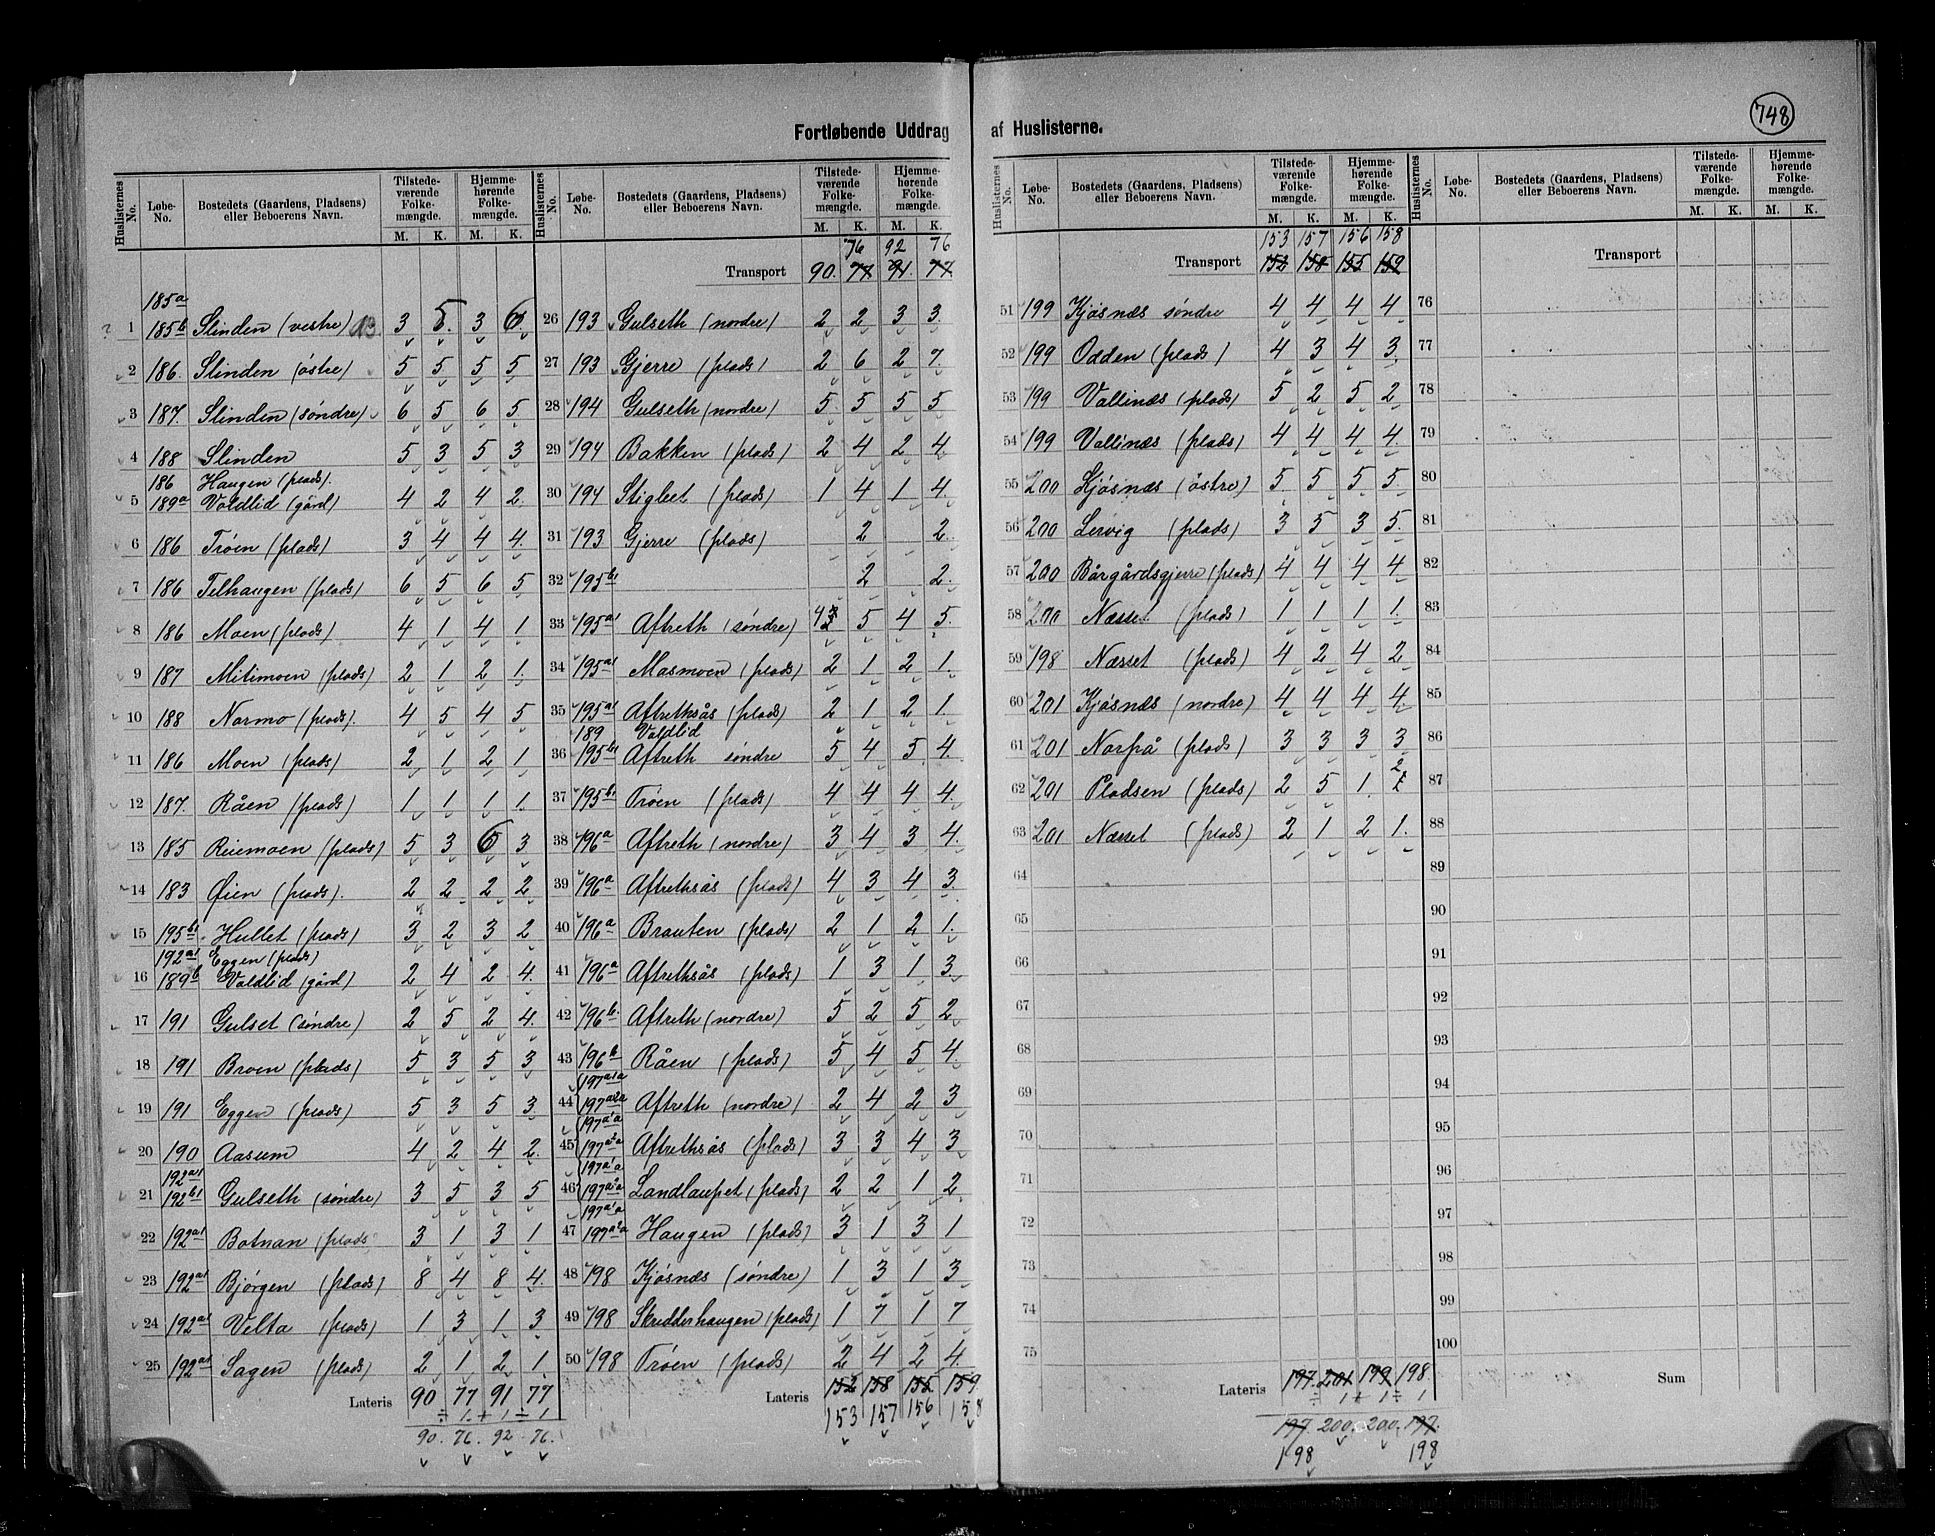 748
Fortløbende Uddrag af Huslisterne.
Huslisternes No. Løbe-No. Bostedets (Gaardens, Pladsens) eller Beboerens Navn. Tilstedeværende Folkemængde. M. K. Hjemmehørende Folkemængde. M. K.
185a
1 185b Slinden (vestre) 3 5. 3 6
2 186. Slinden (östre) 5 5 5 5
3 187. Slinden (søndre) 6 5 6 5
4 188 Slinden 5 3 5 3
186 Haugen (plads).
5 189a Voldlid (gård) 4 2 4 2.
6 186 Trøen (plads) 3 4 4 4.
7 186 Telhaugen (plads) 6 5 6 5
8 186 Moen (plads) 4 1 4 1
9 187 Mitimoen (plads) 2 1 2 1.
10 188 Normo (plads). 4 5 4 5
11 186 Moen (plads) 2 1 2 1
12 187. Råen (plads) 1 1 1 1.
13 185 Reiemoen (plads) 5 3 6 3
14 183 Øien (plads). 2 2 2 2
15 195b1 Hullet (plads) 3 2 3 2
192a1 Eggen (plads)
16 189b Voldlid (gård) 2 4 2 4.
17 191 Gulset (søndre) 2 5 2 4.
18 191 Broen (plads) 5 3 5 3
19 191 Eggen (plads) 5 3 5 3.
20 190 Aasum 4 2 4 2.
192a1
21 192b1 Gulseth (søndre) 3 5 3 5
22 192a1 Botnan (plads 3 1 3 1
23 192a1 Bjørgen (plads) 8 4 8 4.
24 192a1 Velta (plads) 1 3 1 3
25 192a1 Sagen (plads) 2 1 2 1
Lateris 90 77 91 77
÷ 1. + 1 ÷ 1
90. 76. 92 76.
76 92 76
Transport 90. 77 91. 77.
26 193 Gulseth (nordre) 2 2 3 3.
27 193 Gjerre (plads) 2 6 2 7.
28 194 Gulseth (nordre) 5 5 5 5
29 194 Bakken (plads) 2 4 2 4.
30 194 Stigleet (plads) 1 4 1 4.
31 193 Gjerre (plads) 2 2.
32 195b1 2 2.
33 195a1 Aftreth (søndre) 4 3 5 4 5.
34 195a1 Masmoen (plads) 2 1 2 1.
35 195a1 Aftrethsås (plads) 2 1 2 1.
189 Voldlid
36 195b1 Aftreth søndre 5 4 5 4.
37 195b1 Trøen (plads) 4 4 4 4.
38 196a Aftreth (nordre) 3 4 3 4.
39 196a Aftrethsås (plads) 4 3 4 3.
40 196a Brauten (plads) 2 1 2 1.
41 196a Aftrethsås (plads) 1 3 1 3
42 196b. Aftreth (nordre) 5 2 5 2
43 196b Råen (plads) 5 4 5 4.
197a1a
44 197a2a Aftreth (nordre) 2 4 2 3
197a1a
45 197a2a Aftrethsås (plads) 3 3 4 3
197a1a
46 197a2a Landlaupet (plads) 2 2 1 2
197a1a
47 197a2a Haugen (plads) 3 1 3 1
48 198 Kjøsnæs (søndre) 1 3 1 3
49 198 Skredderhaugen (plads) 1 7 1 7
50 198 Trøen (plads) 2 4 2 4.
Lateris 152 158 155 159
153 157 156 158
Huslisternes No. Løbe-No. Bostedets (Gaardens, Pladsens) eller Beboerens Navn. Tilstedeværende Folkemængde. M. K. Hjemmehørende Folkemængde. M. K.
153 157 156 158
Transport 152 158 155 159
51 199 Kjøsnæs søndre 4 4 4 4
52 199 Odden (plads) 4 3 4 3.
53 199 Vallinæs (plads) 5 2 5 2
54 199 Vallinæs (plads) 4 4 4 4.
55 200 Kjøsnæs (östre) 5 5 5 5
56 200 Lervig (plads) 3 5 3 5.
57 200 Bårgårdsgjerre (plads) 4 4 4 4
58 200 Næsset (plads) 1 1 1 1.
59 198 Næsset (plads) 4 2 4 2
60 201 Kjøsnæs (nordre) 4 4 4 4.
61 201 Norpå (plads) 3 3 3 3
62 201 Pladsen (plads) 2 5 1. 2
63 201 Næsset (plads) 2 1 2 1.
64
65
66
67
68
69
70
71
72
73
74
75
Lateris 197. 201 199 198.
÷ 1 + 1 ÷ 1
197 200. 200. 197.
198 198
Transport
76
77
78
79
80
81
82
83
84
85
86
87
88
89
90
91
92
93
94
95
96
97
98
99
100
Sum